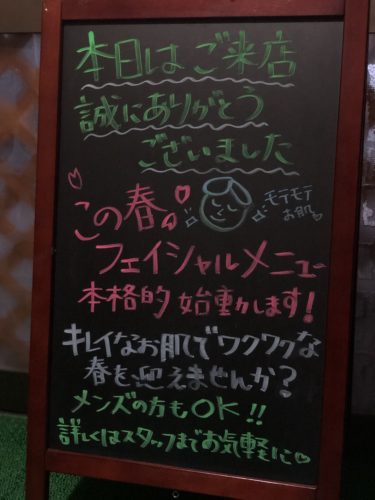 本日はご来店
誠にありがとう
ございました
この春。
モテモテ
お肌
フェイシャルメニュー
本格的始動します!
キレイなお肌でワクワクな
春を迎えませんか?
メンズの方もOK!!
詳しくはスタッフまでお気軽に♡